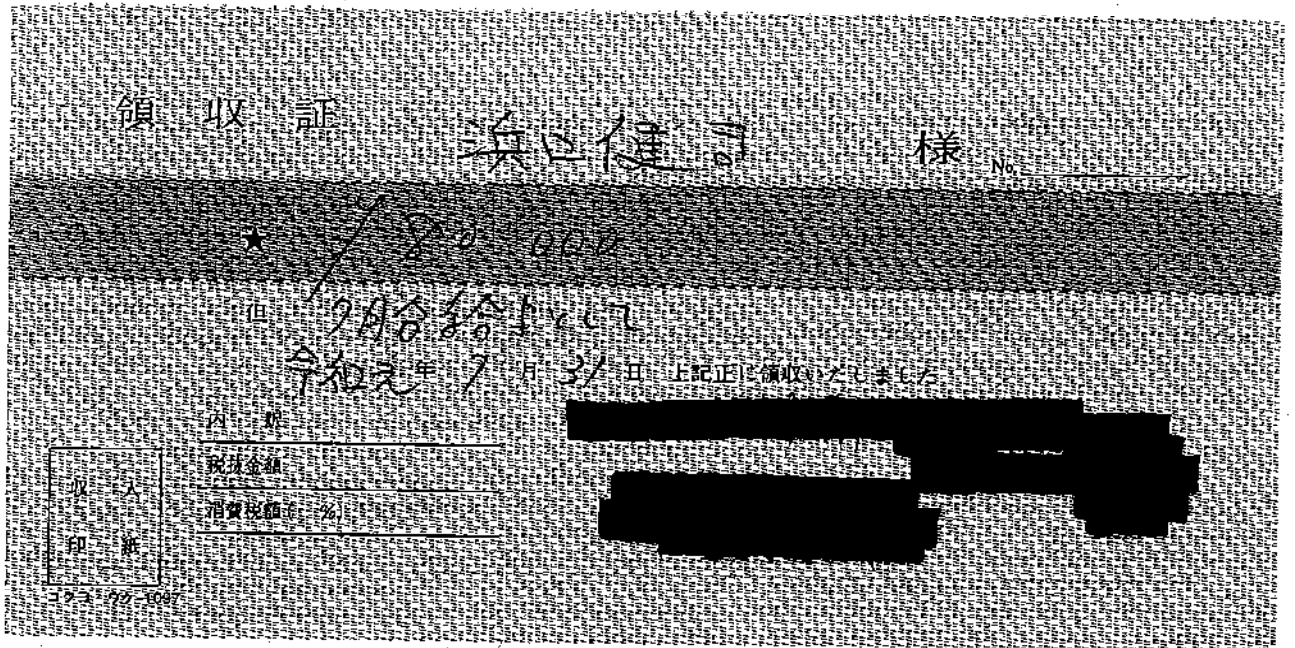 領収証 浜口健司 様 No.
★ 80,000
但 7月分給与として
令和元年 7月 31日 上記正に領収いたしました
内訳
税抜金額
消費税額( %)
収入
印紙
コクヨ ウケ-1097